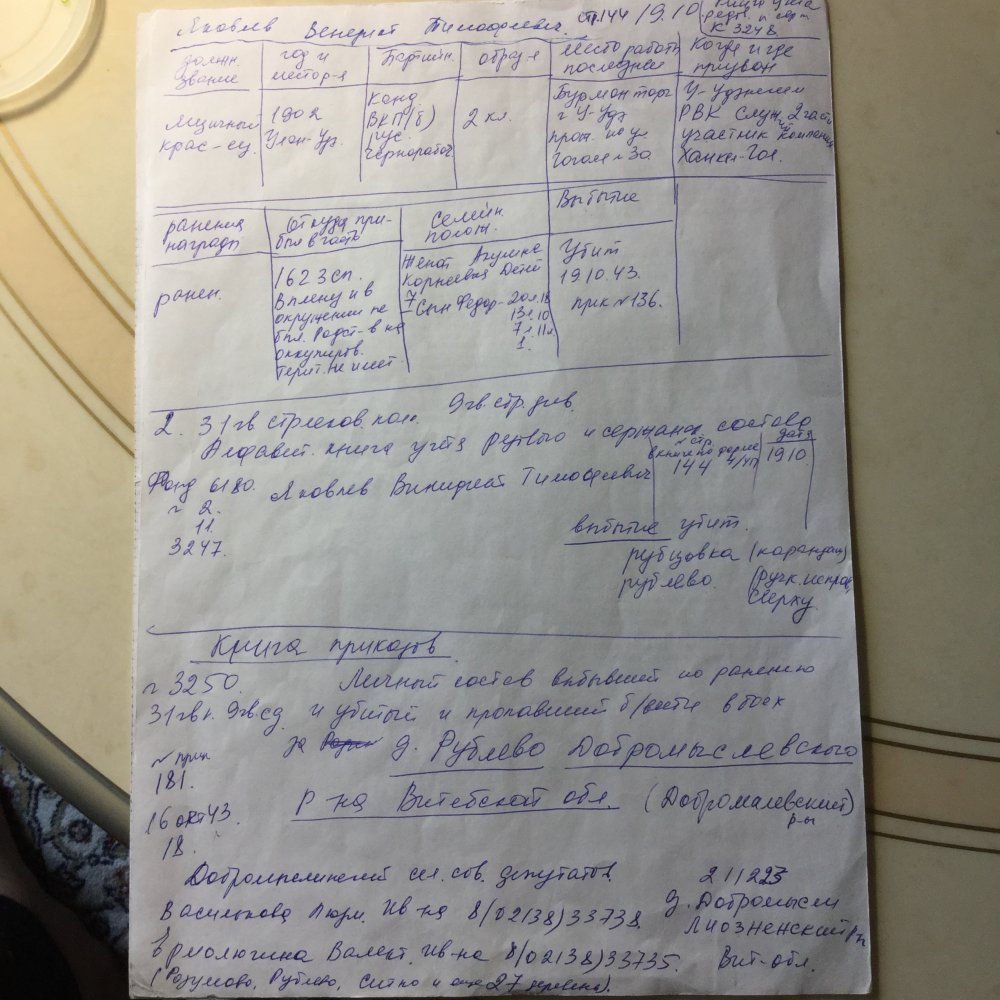 Яковлев Венедикт Тимофеевич. стр. 144 19.10 Книга учета
рядов. и серж
К 3248
должн. звание | год и местор-я | Партийн. | образ-я | Место работы последнее | Когда и где призван
красн-ец. | 1902 Улан-Удэ. | Канд. ВКП(б) рус. чернорабоч. | 2 кл. | Бурмонторг г У-Удэ прож. по ул Гоголя № 30. | У-Удэнским РВК Служ. 2 части участник компании Халхин-Гол.
ранения награды | Откуда при-был в часть | Семейн. полож. | Выбытие
ранен. | 162 зсп. В плену и в окружении не был. Родст-в на оккупиров. терит. не имеет. | Женат Акулина Корнеевна Детей 7 Сын Федор - 20 л. 18 13 л. 10 7 л. 11 л 1. | Убит 19.10.43. прик №136.
2. 31 гв стрелков. пол. 9 гв. стр. див.
Алфавит. книга учета рядового и сержанск. состава
№ стр.
в книге по форме 4/УП | дата
144 | 19.10.
Фонд 6180. Яковлев Виниднкт Тимофеевич
г 2.
11.
3247.
выбытие убит.
рубцовка (карандаш)
рублево. (ручк. исправ,
сверху.
Книга приказов.
г 3250. Личный состав выбывший по ранению
31 гв п. 9 гв. сд и убитый и пропавший б/вести в боях
за д. Рублево Добромыслевского
№ прик
181.
р-на Витебской обл. (Добромалевский)
р-ы
16 окт 43.
18.
Добромыслинский сел. сов. депутатов. 211223
Василькова Людм. Ив-на 8(02138)33738. д. Добромысли
Лиозненский р-н
Ермолюгина Валент. Ив-на 8(02138)33735. Вит-обл.
(Разумово, Рублево, Ситно и еще 27 деревень).